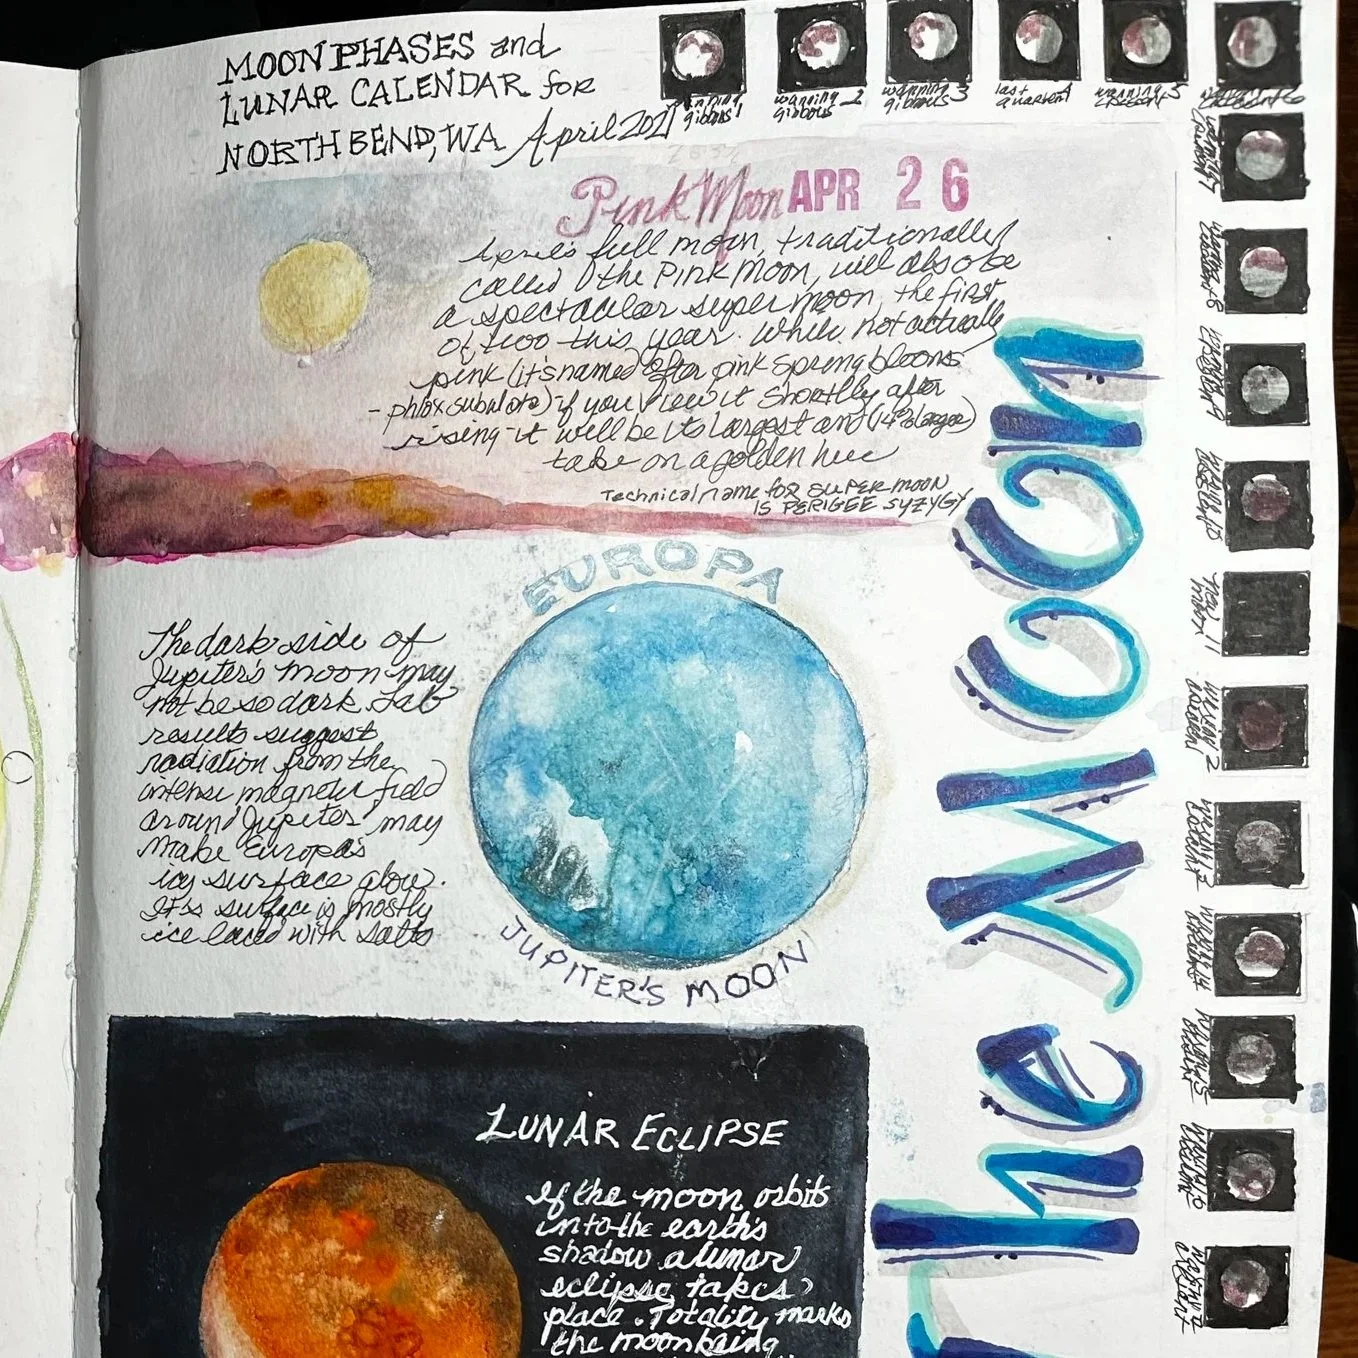 MOON PHASES and
LUNAR CALENDAR for
NORTH BEND, WA April 2021
gibbous 1
wanning 2
gibbous
wanning
gibbous 3
last
quarter 4
wanning 5
Pink Moon APR 26
April's full moon, traditionally
called the Pink Moon, will also be
a spectacular super moon, the first
of two this year. While not actually
pink (it's named after pink spring blooms
- phlox subulata) if you view it shortly after
rising - it will be its largest and (14% larger)
take on a golden hue
Technical name for SUPER MOON
IS PERIGEE SYZYGY
The Moon
EUROPA
The dark side of
Jupiter's moon may
not be so dark. Lab
results suggest
radiation from the
intense magnetic field
around Jupiter may
make Europa's
icy surface glow.
It's surface is mostly
ice laced with salts
JUPITER'S MOON
LUNAR ECLIPSE
If the moon orbits
into the earth's
shadow a lunar
eclipse takes
place. Totality marks
the moon being
new 11
moon